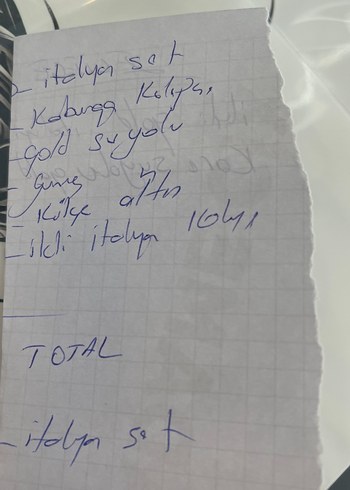 - italyan set
- Kaburga Kelepçe
- gold suyolu
- Güneş
- Külçe altın
- ikli italyan
TOTAL
- italyan set